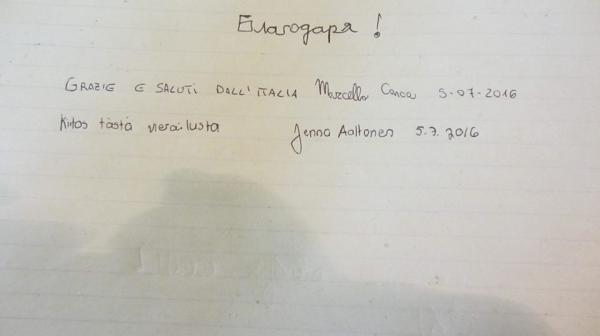 Благодаря !
GRAZIE E SALUTI DALL'ITALIA Marcello Canca 5-07-2016
Kiitos tästä vierailusta Jenna Aaltonen 5.7.2016